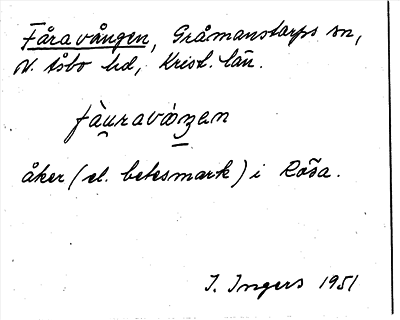 Fåravången, Gråmanstorps sn,
N. Åsbo hd, Krist. län.
fàu̯ravåŋen
åker (el. betesmark) i Röða.
I. Ingers 1951